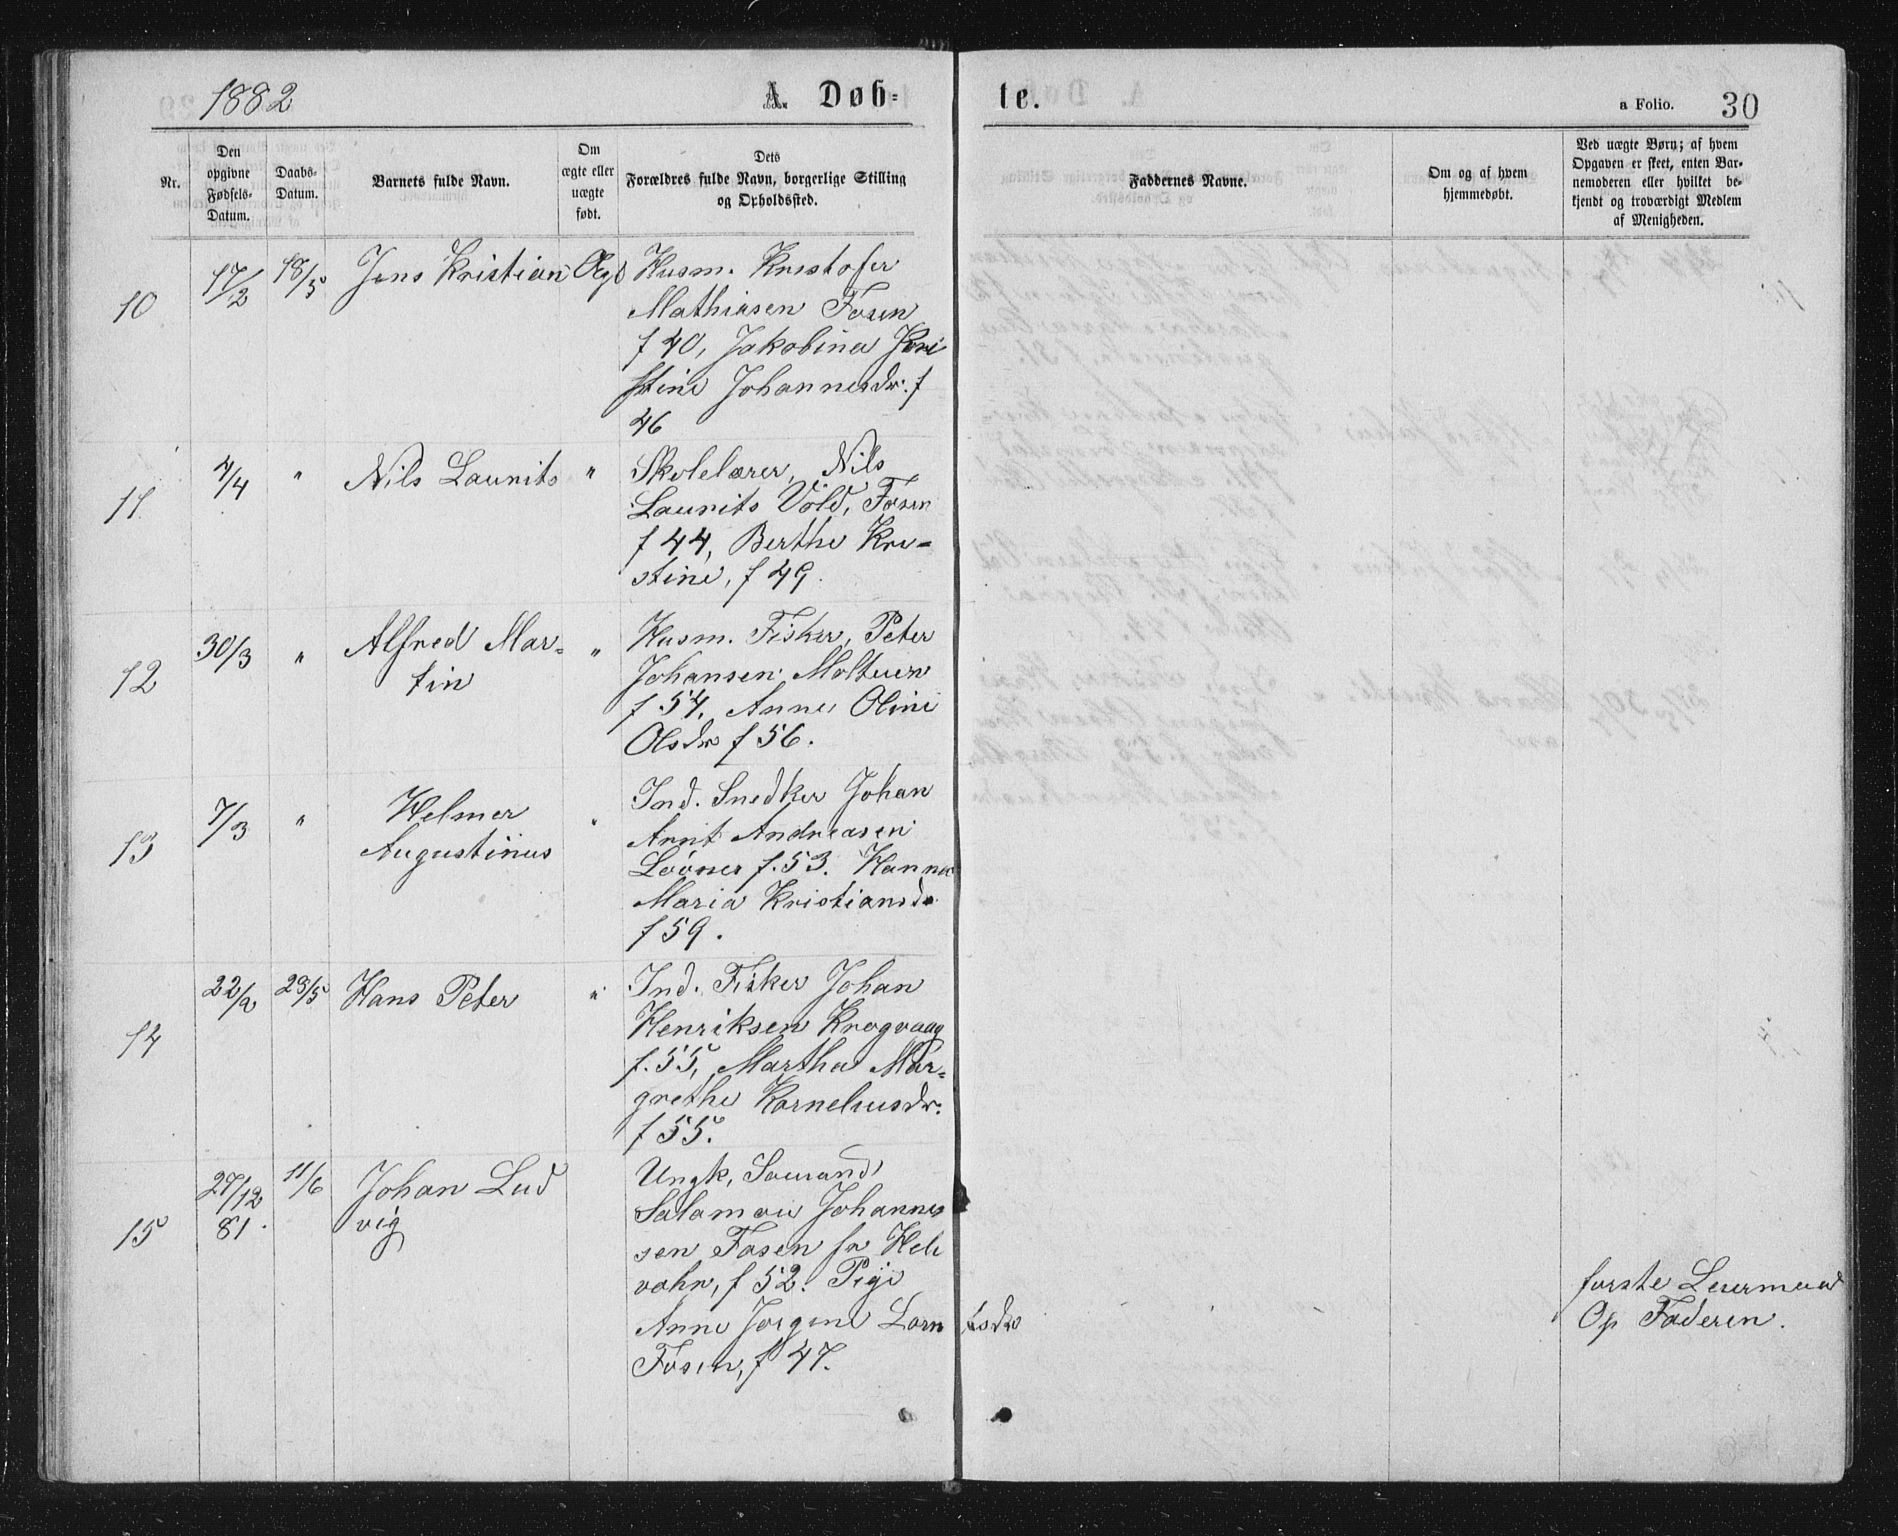 1882
A. Døb-
te.
a Folio. 30
Nr.
Den opgivne Fødsels-Datum.
Daabs-Datum.
Barnets fulde Navn.
Om ægte eller uægte født.
Dets Forældres fulde Navn, borgerlige Stilling og Opholdssted.
Faddernes Navne.
Om og af hvem hjemmedøbt.
Ved uægte Børn; af hvem Opgaven er skeet, enten Barnemoderen eller hvilket bekjendt og troværdigt Medlem af Menigheden.
10 17/2 18/5 Jens Kristian Ægt Husm. Kristofer
Mathiasen Fosen
f 40, Jakobina Kri
stine Johannesdr. f
46
11 4/4 " Nils Laurits " Skolelærer, Nils
Laurits Vold, Fosen
f 44, Berthe Kri-
stine, f 49.
12 30/3 " Alfred Mar- " Husm. Fisker, Peter
tin Johansen
f 54, Anne Oline
Olsdr f 56.
13 7/3 " Helmer " Ind. Snedker Johan
Augustinus Arnt Andreasen
f. 53. Hanna
Maria Kristiansdr
f 59.
14 22/2 23/5 Hans Peter " Ind. Fisker Johan
Henriksen Krogvaag
f. 55, Martha Mar-
grethe Korneliusdr.
f 55.
15 27/12 11/6 Johan Lud Ungk,
81. vig Johannes
sen Fosen fr
f 52. Pige
Anne Jørgine
Fosen, f 47.
første Leiermaal
Op Faderen.